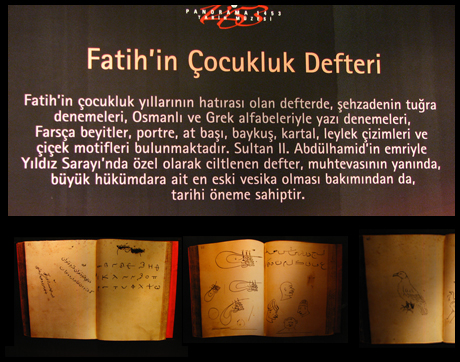 PANORAMA 1453
TARİH MÜZESİ
Fatih'in Çocukluk Defteri
Fatih'in çocukluk yıllarının hatırası olan defterde, şehzadenin tuğra
denemeleri, Osmanlı ve Grek alfabeleriyle yazı denemeleri,
Farsça beyitler, portre, at başı, baykuş, kartal, leylek çizimleri ve
çiçek motifleri bulunmaktadır. Sultan II. Abdülhamid'in emriyle
Yıldız Sarayı'nda özel olarak ciltlenen defter, muhtevasının yanında,
büyük hükümdara ait en eski vesika olması bakımından da,
tarihi öneme sahiptir.